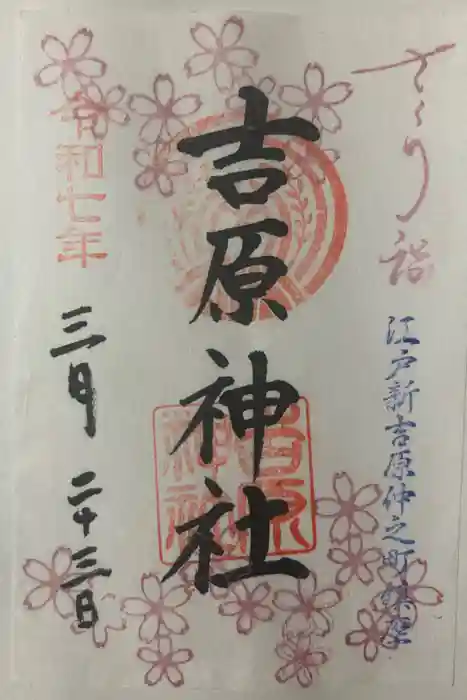 さくり詣
江戸新吉原仲之町鎮座
吉原神社
吉原神社
令和七年
三月二十三日